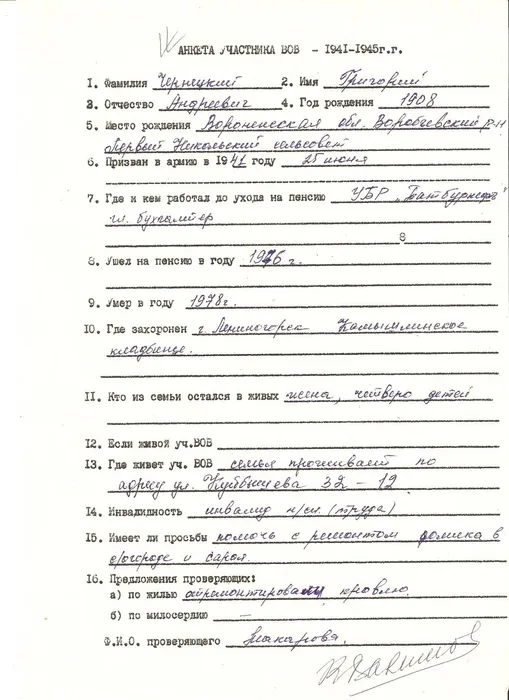 АНКЕТА УЧАСТНИКА ВОВ - 1941-1945г.г.
1. Фамилия Чернецкий 2. Имя Григорий
3. Отчество Андреевич 4. Год рождения 1908
5. Место рождения Воронежская обл. Воробьевский р-н
Первый Никольский сельсовет
6. Призван в армию в 1941 году 25 июня
7. Где и кем работал до ухода на пенсию УБР "Татбурнефть"
гл. бухгалтер
8
8. Ушел на пенсию в году 1976 г.
9. Умер в году 1978г.
10. Где захоронен г. Лениногорск Камышлинское
кладбище.
11. Кто из семьи остался в живых жена, четверо детей
12. Если живой уч.ВОВ
13. Где живет уч. ВОВ семья проживает по
адресу ул. Куйбышева 32 - 12
14. Инвалидность инвалид (труда)
15. Имеет ли просьбы помочь с ремонтом домика в
огороде и сарая.
16. Предложения проверяющих:
а) по жилью отремонтировать кровлю
б) по милосердию —
Ф.И.О. проверяющего Макарова.